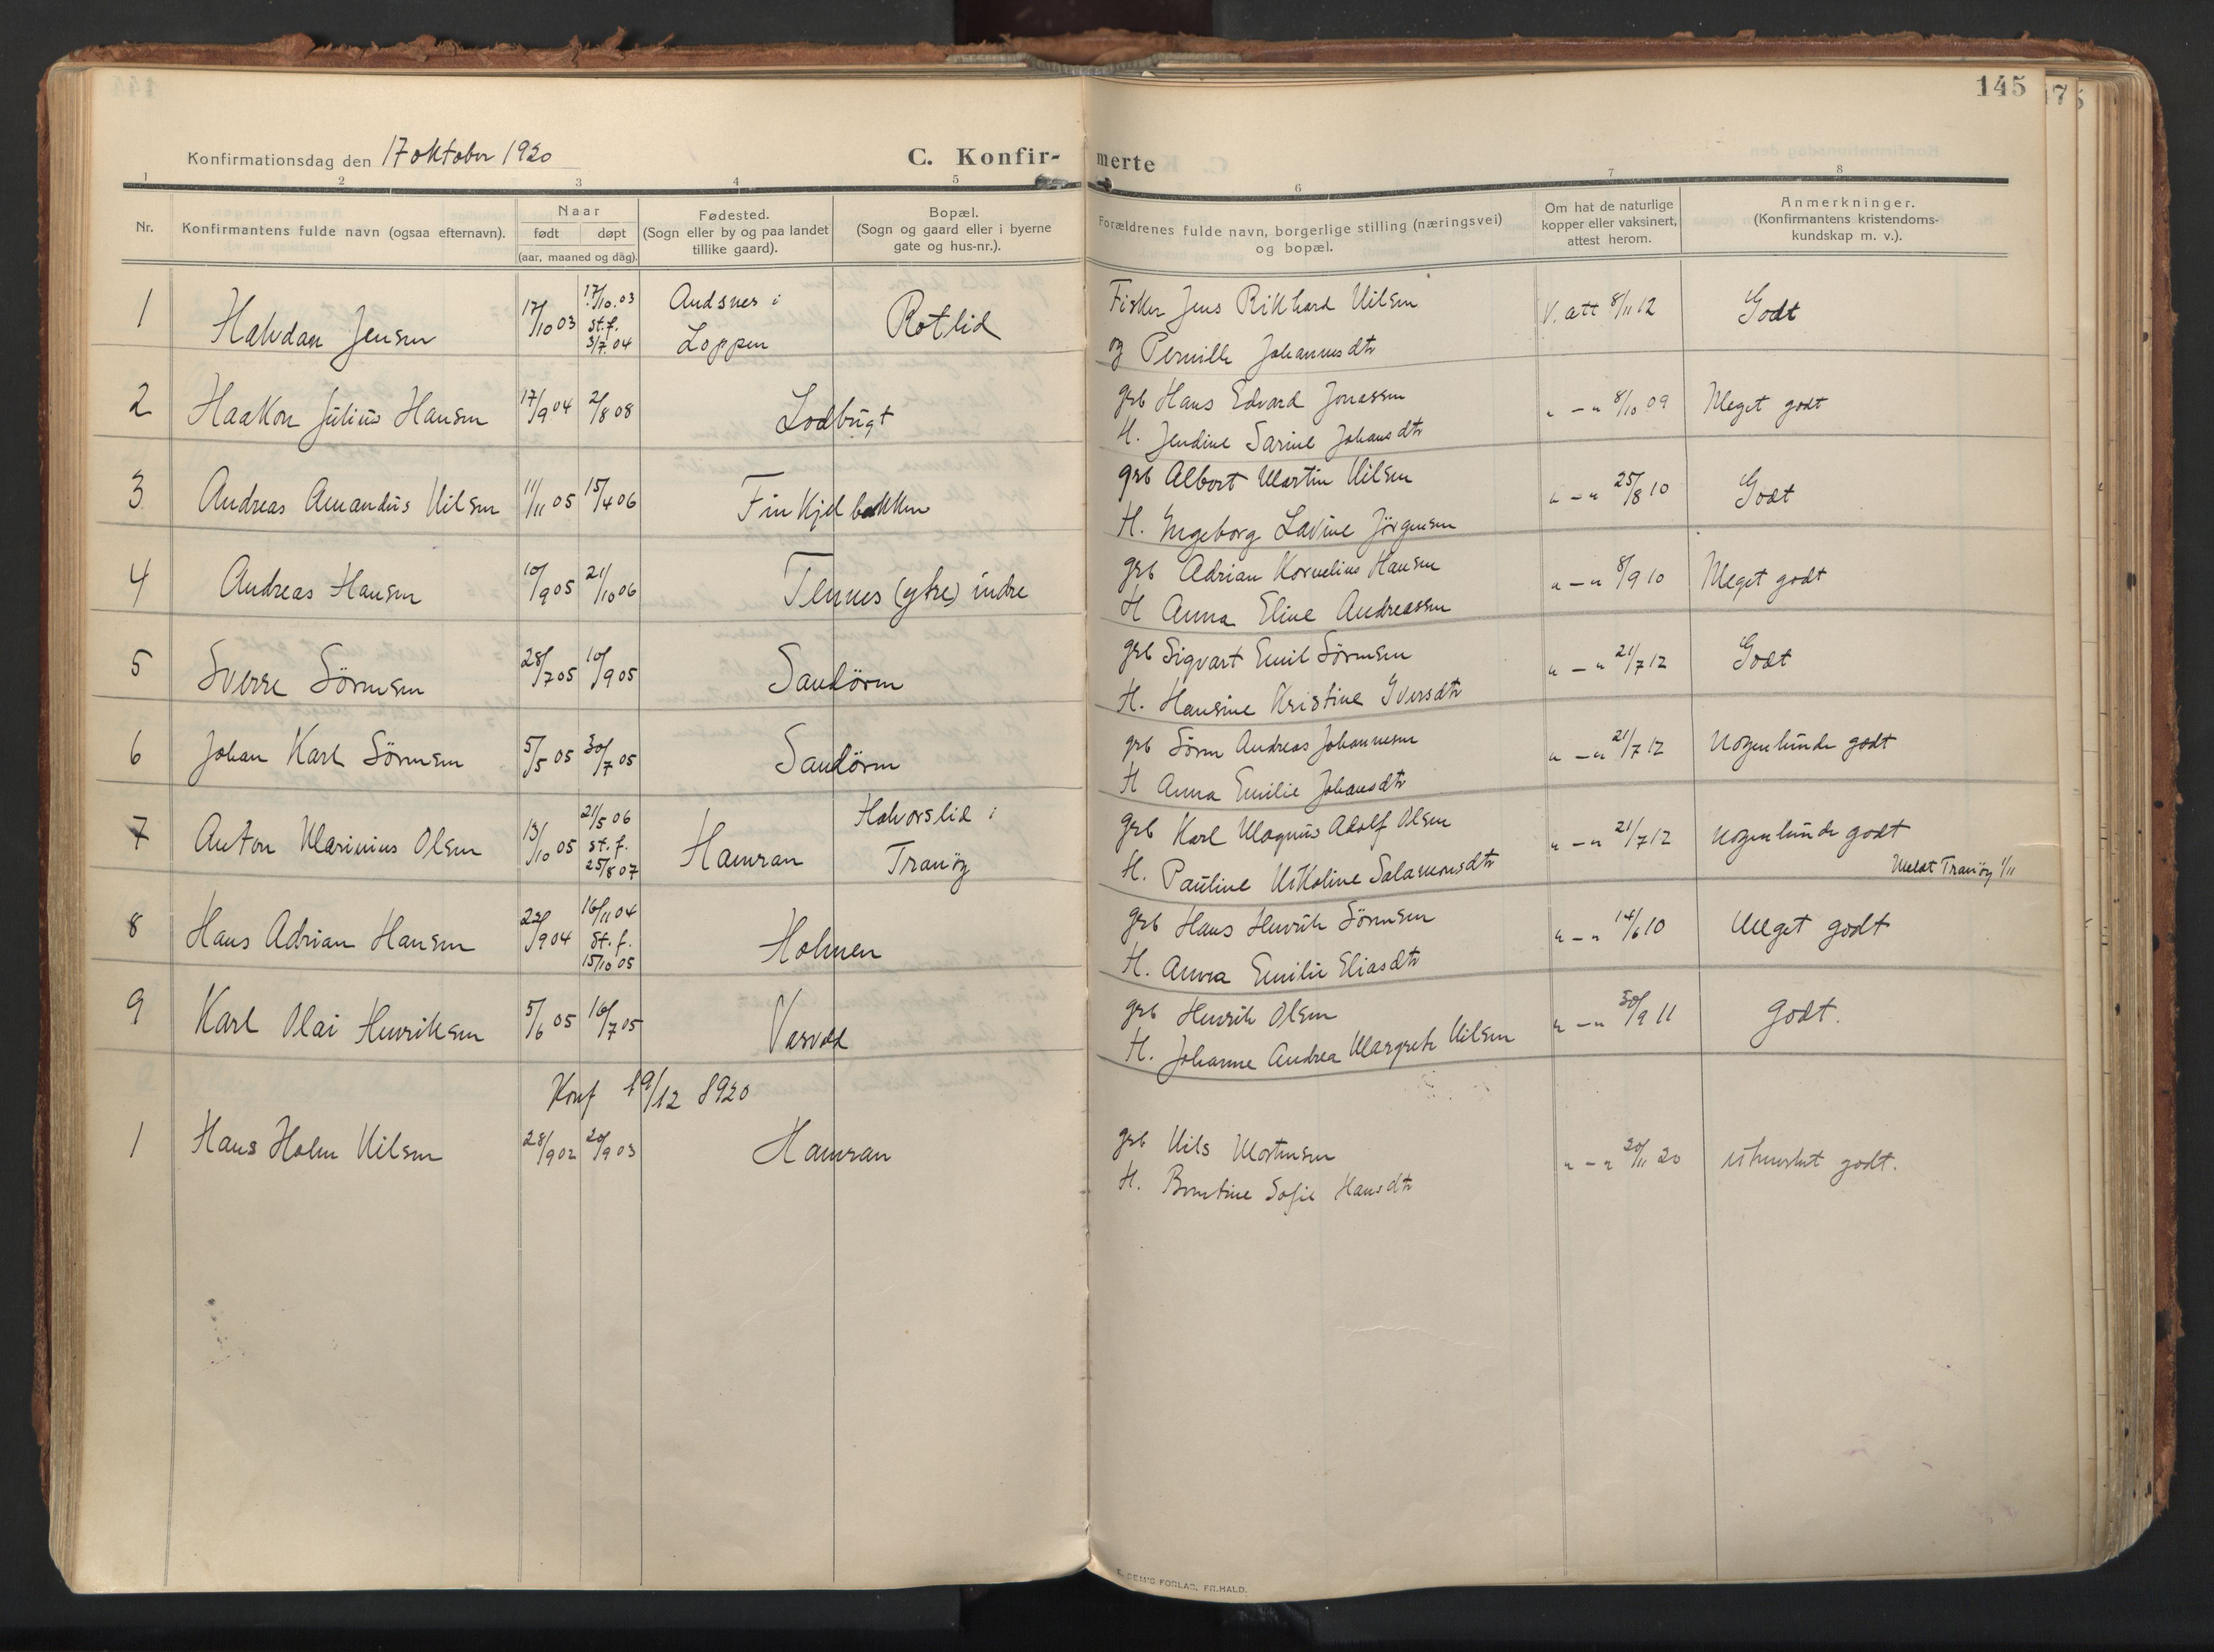 145
Konfirmationsdag den 17 oktober 1920
C. Konfir-
merte
1 2 3 4 5 6 7 8
Nr.
Konfirmantens fulde navn (ogsaa efternavn).
Naar
født døpt
(aar, maaned og dag).
Fødested.
(Sogn eller by og paa landet
tillike gaard).
Bopæl.
(Sogn og gaard eller i byerne
gate og hus-nr.).
Forældrenes fulde navn, borgerlige stilling (næringsvei)
og bopæl.
Om hat de naturlige
kopper eller vaksinert,
attest herom.
Anmerkninger.
(Konfirmantens kristendoms-
kundskap m. v.).
1 Halvdan Jensen 17/10 03 17/10.03 st.f. 3/7.04 Andsnes i Loppen Rotlid
Fisker Jens Rikhard Nilsen V. att 8/11 12 Godt
og Pernille Johannesdtr
2 Haakon Julius Hansen 17/9 04 2/8 08 Lodbugt
grb Hans Edvard Jonassen " — " 8/10 09 Meget godt
H. Jendine Sarine Johansdtr
3 Andreas Amandus Nilsen 11/11 05 15/4 06 Finkjelbakken
grb Albert Martin Nilsen " — " 25/8 10 Godt
H. Ingeborg Lavine Jörgensen
4 Andreas Hansen 10/9 05 21/10 06 Tennes (ytre) indre
grb Adrian Kornelius Hansen " — " 8/9 10 Meget godt
H Anna Eline Andreassen
5 Sverre Sörensen 28/7 05 10/9 05 Sandören
grb Sigvart Emil Sörensen " — " 21/7 12 Godt
H. Hansine Kristine Iversdtr
6 Johan Karl Sörensen 5/5 05 30/7 05 Sandören
grb Sören Andreas Johannesen " — " 21/7 12 Nogenlunde godt
H Anna Emilie Johansdtr
7 Anton Marinius Olsen 13/10 05 21/5 06 st. f. 25/8 07 Hamran Halvorslid i Tranöy
grb Karl Magnus Adolf Olsen " — " 21/7 12 Nogenlunde godt
H. Pauline Nikoline Salamonsdtr Meldt Tranöy 1/11
8 Hans Adrian Hansen 22/9 04 16/11 04 St. f. 15/10 05 Holmen
grb Hans Henrik Sörensen " — " 14/6 10 Meget godt
H. Anna Emilie Eliasdtr
9 Karl Olai Henriksen 5/6 05 16/7 05 Vasvold
grb Henrik Olsen " — " 30/9 11 godt.
H. Johanne Andrea Margrete Nilsen
Konf 19/12 1920
1 Hans Holm Nilsen 28/9 02 20/9 03 Hamran
grb Nils Mortensen " — " 20/11 20 utmerket godt.
H. Berntine Sofie Hansdtr
FORLAG, FR.HALD.